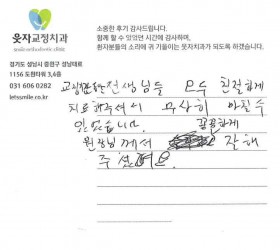 웃자교정치과
소중한 후기 감사드립니다.
함께 할 수 있었던 시간에 감사하며,
환자분들의 소리에 귀 기울이는 웃자치과가 되도록 하겠습니다.
경기도 성남시 중원구 성남대로
1156 도원타워 3,6층
031 606 0282
letssmile.co.kr
선생님들 모두 친절하게
치료해주셔서 무사히 마칠수
있었습니다. 꼼꼼하게
원장님께서 잘해
주셨어요